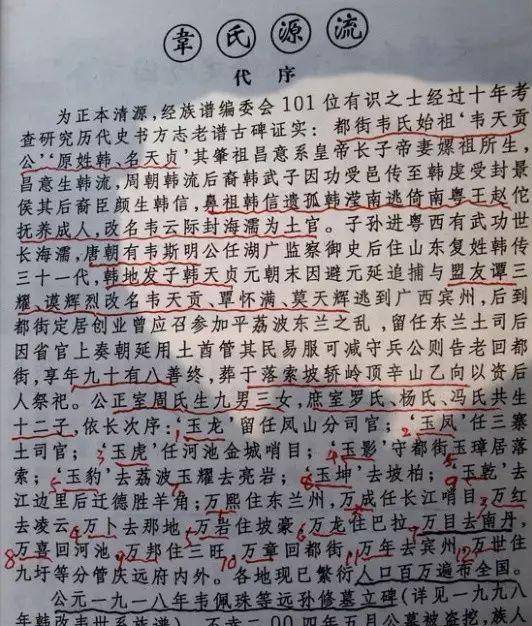 韋氏源流
代序
为正本清源,经族谱编委会101位有识之士经过十年考
查研究历代史书方志老谱古碑证实：都街韦氏始祖‘韦天贡
公’‘原姓韩、名天贞’其肇祖昌意系皇帝长子帝妻嫘祖所生,
昌意生韩流,周朝韩流后裔韩武子因功受邑传至韩虔受封景
侯其后裔臣颜生韩信,鼻祖韩信遗孤韩滢南逃倚南粤王赵佗
抚养成人,改名韦云际封海濡为土官。子孙进粤西有武功世
长海濡,唐朝有韦斯明公任湖广监察御史后住山东复姓韩传
三十一代,韩地发子韩天贞元朝末因避元延追捕与盟友谭三
耀、谟辉烈改名韦天贡、覃怀满、莫天辉逃到广西宾州,后到
都街定居创业曾应召参加平荔波东兰之乱,留任东兰土司后
因省官上奏朝延用土酋管其民易服可减守兵公则告老回都
街,享年九十有八善终,葬于落索坡轿岭顶辛山乙向以资后
人祭祀。公正室周氏生九男三女,庶室罗氏、杨氏、冯氏共生
十二子,依长次序：1‘玉龙’留任凤山分司官；2‘玉凤’任三寨
土司官；3‘玉虎’任河池金城哨目；4‘玉影’守都街玉璋居落
索；5‘玉豹’去荔波玉耀去亮岩；8‘玉坤’去坡柏；9‘玉乾’去
江边里后迁德胜羊角；万熙住东兰州,万成任长江哨目3万红
去凌云4万卜去那地5万岩住坡豪6万龙住巴拉7万目去南丹
8万喜回河池9万邦住三旺,10万章回都街11万年去宾州12万世住
九圩等分管庆远府内外。各地现已繁衍人口百万遍布全国。
公元一九一八年韦佩珠等远孙修墓立碑(详见一九九八